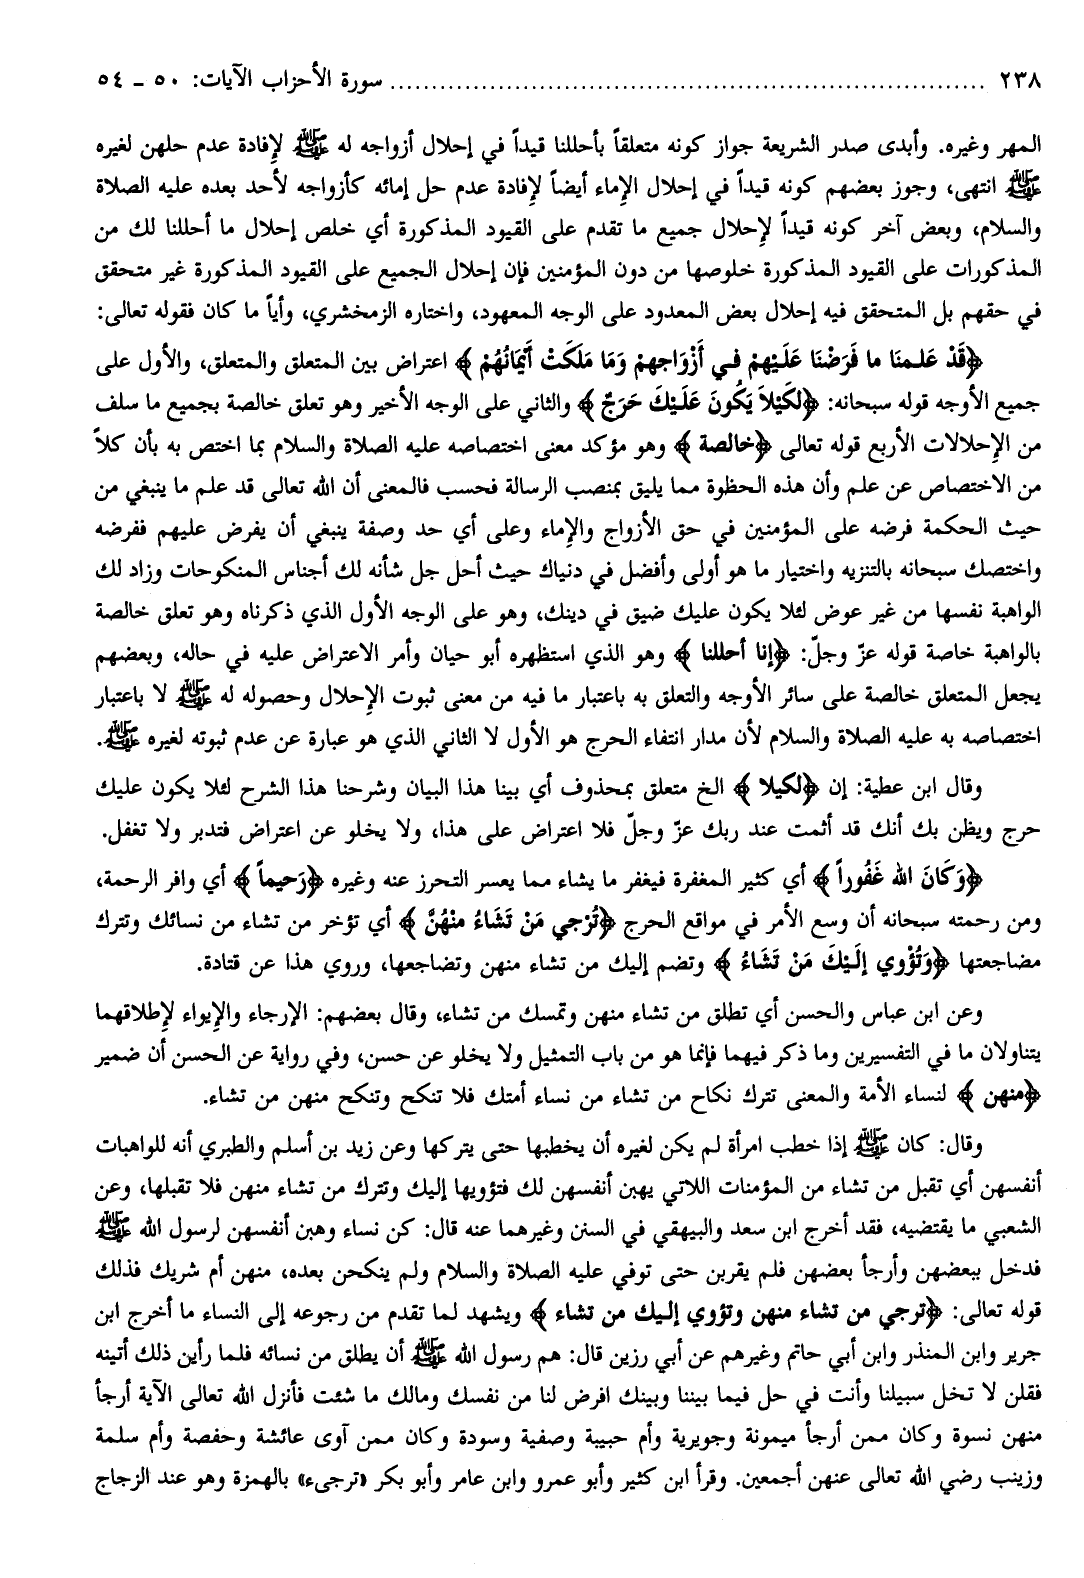 ٢٣٨ ........................................ سورة الأحزاب الآيات: ٥٠ ـ ٥٤
المهر وغيره. وأبدى صدر الشريعة جواز كونه متعلقاً بأحللنا قيداً في إحلال أزواجه له ﷺ لإفادة عدم حلهن لغيره
ﷺ انتهى، وجوز بعضهم كونه قيداً في إحلال الإماء أيضاً لإفادة عدم حل إمائه كأزواجه لأحد بعده عليه الصلاة
والسلام، وبعض آخر كونه قيداً لإحلال جميع ما تقدم على القيود المذكورة أي خلص إحلال ما أحللنا لك من
المذكورات على القيود المذكورة خلوصها من دون المؤمنين فإن إحلال الجميع على القيود المذكورة غير متحقق
في حقهم بل المتحقق فيه إحلال بعض المعدود على الوجه المعهود، واختاره الزمخشري، وأياً ما كان فقوله تعالى:
﴿قَدْ عَلمنَا ما فَرَضْنَا عَلَيْهمْ في أَزْوَاجهمْ وَمَا مَلَكَتْ أَيْمَانُهُمْ﴾ اعتراض بين المتعلق والمتعلق، والأول على
جميع الأوجه قوله سبحانه: ﴿لكَيْلاَ يَكُونَ عَلَيْكَ حَرَجٌ﴾ والثاني على الوجه الأخير وهو تعلق خالصة بجميع ما سلف
من الإحلالات الأربع قوله تعالى ﴿خالصة﴾ وهو مؤكد معنى اختصاصه عليه الصلاة والسلام بما اختص به بأن كلاً
من الاختصاص عن علم وأن هذه الحظوة مما يليق بمنصب الرسالة فحسب فالمعنى أن الله تعالى قد علم ما ينبغي من
حيث الحكمة فرضه على المؤمنين في حق الأزواج والإماء وعلى أي حد وصفة ينبغي أن يفرض عليهم ففرضه
واختصك سبحانه بالتنزيه واختيار ما هو أولى وأفضل في دنياك حيث أحل جل شأنه لك أجناس المنكوحات وزاد لك
الواهبة نفسها من غير عوض لئلا يكون عليك ضيق في دينك، وهو على الوجه الأول الذي ذكرناه وهو تعلق خالصة
بالواهبة خاصة قوله عزّ وجلّ: ﴿إنا أحللنا﴾ وهو الذي استظهره أبو حيان وأمر الاعتراض عليه في حاله، وبعضهم
يجعل المتعلق خالصة على سائر الأوجه والتعلق به باعتبار ما فيه من معنى ثبوت الإحلال وحصوله له ﷺ لا باعتبار
اختصاصه به عليه الصلاة والسلام لأن مدار انتفاء الحرج هو الأول لا الثاني الذي هو عبارة عن عدم ثبوته لغيره ﷺ.
وقال ابن عطية: إن ﴿لكيلا﴾ الخ متعلق بمحذوف أي بينا هذا البيان وشرحنا هذا الشرح لئلا يكون عليك
حرج ويظن بك أنك قد أثمت عند ربك عزّ وجلّ فلا اعتراض على هذا، ولا يخلو عن اعتراض فتدبر ولا تغفل.
﴿وَكَانَ الله غَفُوراً﴾ أي كثير المغفرة فيغفر ما يشاء مما يعسر التحرز عنه وغيره ﴿رَحيماً﴾ أي وافر الرحمة،
ومن رحمته سبحانه أن وسع الأمر في مواقع الحرج ﴿تُرْجي مَنْ تَشَاءُ منْهُنَّ﴾ أي تؤخر من تشاء من نسائك وتترك
مضاجعتها ﴿وَتُؤْوي إلَيْكَ مَنْ تَشَاءُ﴾ وتضم إليك من تشاء منهن وتضاجعها، وروي هذا عن قتادة.
وعن ابن عباس والحسن أي تطلق من تشاء منهن وتمسك من تشاء، وقال بعضهم: الإرجاء والإيواء لإطلاقهما
يتناولان ما في التفسيرين وما ذكر فيهما فإنما هو من باب التمثيل ولا يخلو عن حسن، وفي رواية عن الحسن أن ضمير
﴿منهن﴾ لنساء الأمة والمعنى تترك نكاح من تشاء من نساء أمتك فلا تنكح وتنكح منهن من تشاء.
وقال: كان ﷺ إذا خطب امرأة لم يكن لغيره أن يخطبها حتى يتركها وعن زيد بن أسلم والطبري أنه للواهبات
أنفسهن أي تقبل من تشاء من المؤمنات اللاتي يهبن أنفسهن لك فتؤويها إليك وتترك من تشاء منهن فلا تقبلها، وعن
الشعبي ما يقتضيه، فقد أخرج ابن سعد والبيهقي في السنن وغيرهما عنه قال: كن نساء وهبن أنفسهن لرسول الله ﷺ
فدخل ببعضهن وأرجأ بعضهن فلم يقربن حتى توفي عليه الصلاة والسلام ولم ينكحن بعده، منهن أم شريك فذلك
قوله تعالى: ﴿ترجي من تشاء منهن وتؤوي إليك من تشاء﴾ ويشهد لما تقدم من رجوعه إلى النساء ما أخرج ابن
جرير وابن المنذر وابن أبي حاتم وغيرهم عن أبي رزين قال: هم رسول الله ﷺ أن يطلق من نسائه فلما رأين ذلك أتينه
فقلن لا تخل سبيلنا وأنت في حل فيما بيننا وبينك افرض لنا من نفسك ومالك ما شئت فأنزل الله تعالى الآية أرجأ
منهن نسوة وكان ممن أرجأ ميمونة وجويرية وأم حبيبة وصفية وسودة وكان ممن آوى عائشة وحفصة وأم سلمة
وزينب رضي الله تعالى عنهن أجمعين. وقرأ ابن كثير وأبو عمرو وابن عامر وأبو بكر «ترجىء» بالهمزة وهو عند الزجاج